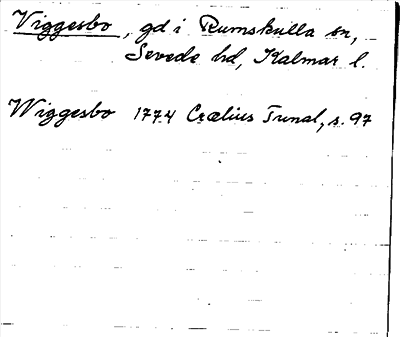 Viggesbo, gd i Rumskulla sn,
Sevede hd, Kalmar l.
Wiggesbo 1774 Crælius Tunal, s. 97